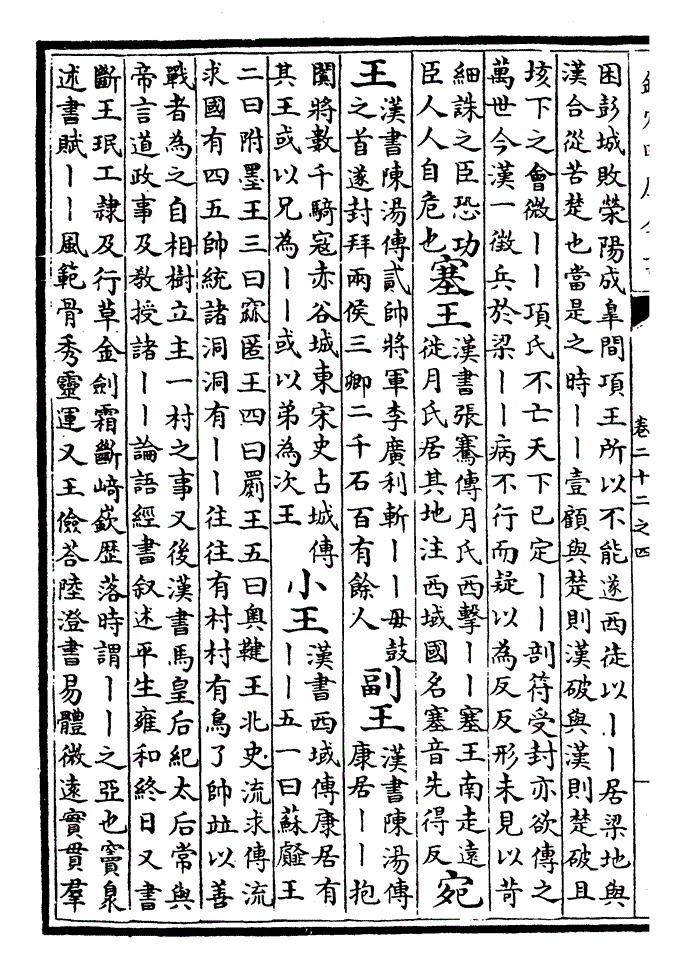 卷二十二之四
困彭城敗榮陽成臯間項王所以不能遂西徒以丨丨居梁地與
漢合從苦楚也當是之時丨丨壹顧與楚則漢破與漢則楚破且
垓下之會微丨丨項氏不亡天下已定丨丨剖符受封亦欲傳之
萬世今漢一徵兵於梁丨丨病不行而疑以為反反形未見以苛
細誅之臣恐功
臣人人自危也
塞王
漢書張騫傳月氏西擊丨丨塞王南走遠
徙月氏居其地注西域國名塞音先得反
宛
王
漢書陳湯傳貳帥將軍李廣利斬丨丨毋鼓
之首遂封拜兩侯三卿二千石百有餘人
副王
漢書陳湯傳
康居丨丨抱
闐將數千騎寇赤谷城東宋史占城傳
其王或以兄為丨丨或以弟為次王
小王
漢書西域傳康居有
丨丨五一曰蘇䪥王
二曰附墨王三曰窳匿王四曰罽王五曰奥鞬王北史流求傳流
求國有四五帥統諸洞洞有丨丨往往有村村有鳥了帥竝以善
戰者為之自相樹立主一村之事又後漢書馬皇后紀太后常與
帝言道政事及教授諸丨丨論語經書叙述平生雍和終日又書
斷王珉工隷及行草金劍霜斷﨑嶔歴落時謂丨丨之亞也竇臮
述書賦丨丨風範骨秀靈運又王儉荅陸澄書易體微遠實貫羣